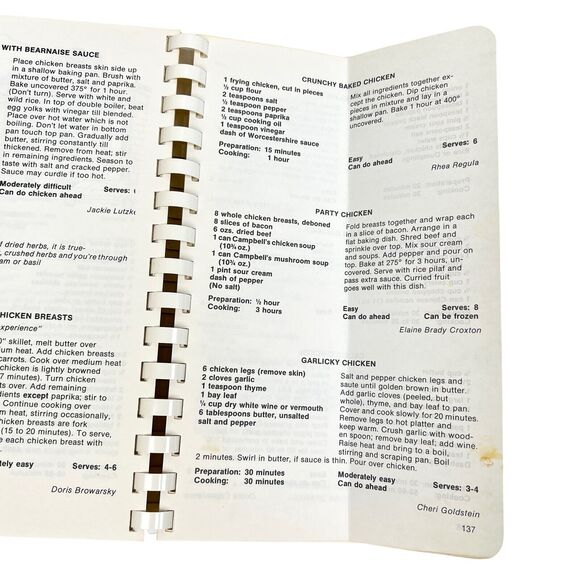 WITH BEARNAISE SAUCE
Place chicken breasts skin side up
in a shallow baking pan. Brush with
mixture of butter, salt and paprika.
Bake uncovered 375° for 1 hour.
(Don't turn). Serve with white and
wild rice. In top of double boiler, beat
egg yolks with vinegar till blended.
Place over hot water which is not
boiling. Don't let water in bottom
pan touch top pan. Gradually add
butter, stirring constantly till
thickened. Remove from heat; stir
in remaining ingredients. Season to
taste with salt and cracked pepper.
Sauce may curdle if too hot.
Moderately difficult
Can do chicken ahead
Serves:
Jackie
of dried herbs, it is true-
, crushed herbs and you're through
am or basil
HICKEN BREASTS
xperience"
0" skillet, melt butter over
ium heat. Add chicken breasts
carrots. Cook over medium heat
chicken is lightly browned
7 minutes). Turn chicken
over. Add remaining
edients except paprika; stir to
Continue cooking over
m heat, stirring occasionally,
chicken breasts are fork
(15 to 20 minutes). To serve,
e each chicken breast with
ately easy
Serves: 4-6
Doris Browarsky
CRUNCHY BAKED CHICKEN
1 frying chicken, cut in pieces
½ cup flour
2 teaspoons salt
½ teaspoon pepper
2 teaspoons paprika
½ cup cooking oil
1 teaspoon vinegar
dash of Worcestershire sauce
Preparation: 15 minutes
Cooking: 1 hour
Mix all ingredients together ex-
cept the chicken. Dip chicken
pieces in mixture and lay in a
shallow pan. Bake 1 hour at 400°
uncovered.
Easy
Can do ahead
Serves: 6
Rhea Regula
PARTY CHICKEN
8 whole chicken breasts, deboned
8 slices of bacon
6 ozs. dried beef
1 can Campbell's chicken soup
(10¾ oz.)
1 can Campbell's mushroom soup
(10¾ oz.)
1 pint sour cream
dash of pepper
(No salt)
Preparation: ½ hour
Cooking: 3 hours
Fold breasts together and wrap each
in a slice of bacon. Arrange in a
flat baking dish. Shred beef and
sprinkle over top. Mix sour cream
and soups. Add pepper and pour on
top. Bake at 275° for 3 hours, un-
covered. Serve with rice pilaf and
pass extra sauce. Curried fruit
goes well with this dish.
Easy
Can do ahead
Serves: 8
Can be frozen
Elaine Brady Croxton
GARLICKY CHICKEN
6 chicken legs (remove skin)
2 cloves garlic
1 teaspoon thyme
1 bay leaf
¼ cup dry white wine or vermouth
6 tablespoons butter, unsalted
salt and pepper
Salt and pepper chicken legs and
saute until golden brown in butter.
Add garlic cloves (peeled, but
whole), thyme, and bay leaf to pan.
Cover and cook slowly for 20 minutes.
Remove legs to hot platter and
keep warm. Crush garlic with wood-
en spoon; remove bay leaf; add wine.
Raise heat and bring to a boil,
stirring and scraping pan. Boil
2 minutes. Swirl in butter, if sauce is thin. Pour over chicken.
Preparation: 30 minutes
Cooking: 30 minutes
Moderately easy
Can do ahead
Serves: 3-4
Cheri Goldstein
137